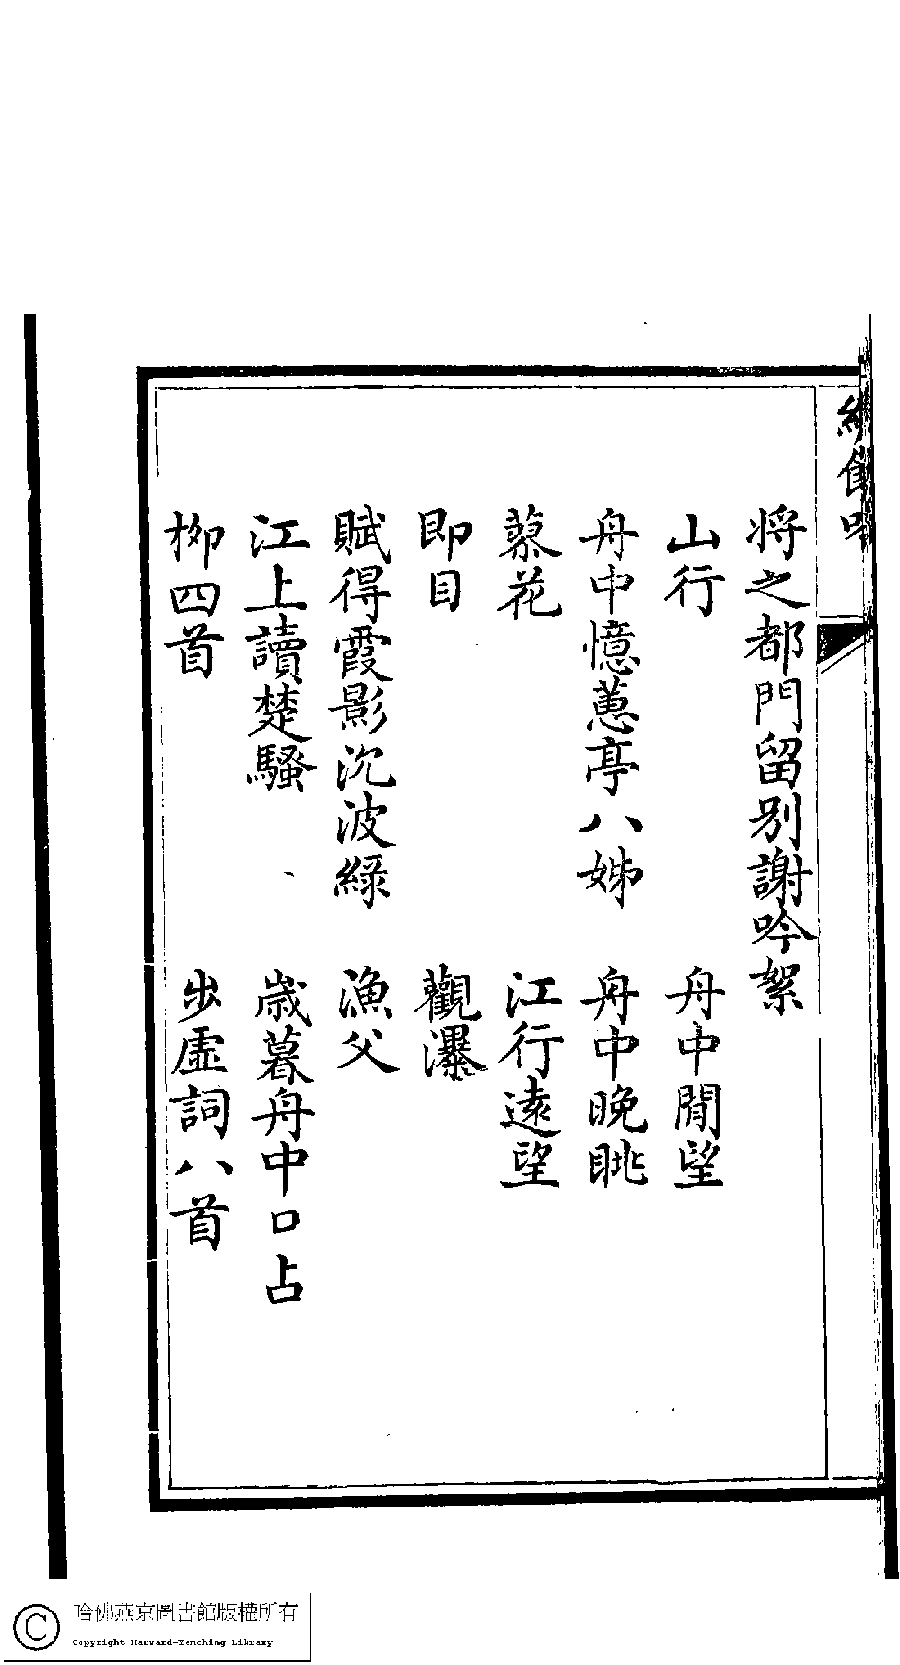 繡餘吟
將之都門留別謝吟絮
山行　舟中閒望
舟中憶蕙亭八姊　舟中晚眺
蓼花　江行遠望
即目　觀瀑
賦得霞影沉波綠　漁父
江上讀楚騷　歲暮舟中口占
柳四首　步虛詞八首
哈佛燕京圖書館版權所有
Copyright Harvard-Yenching Library